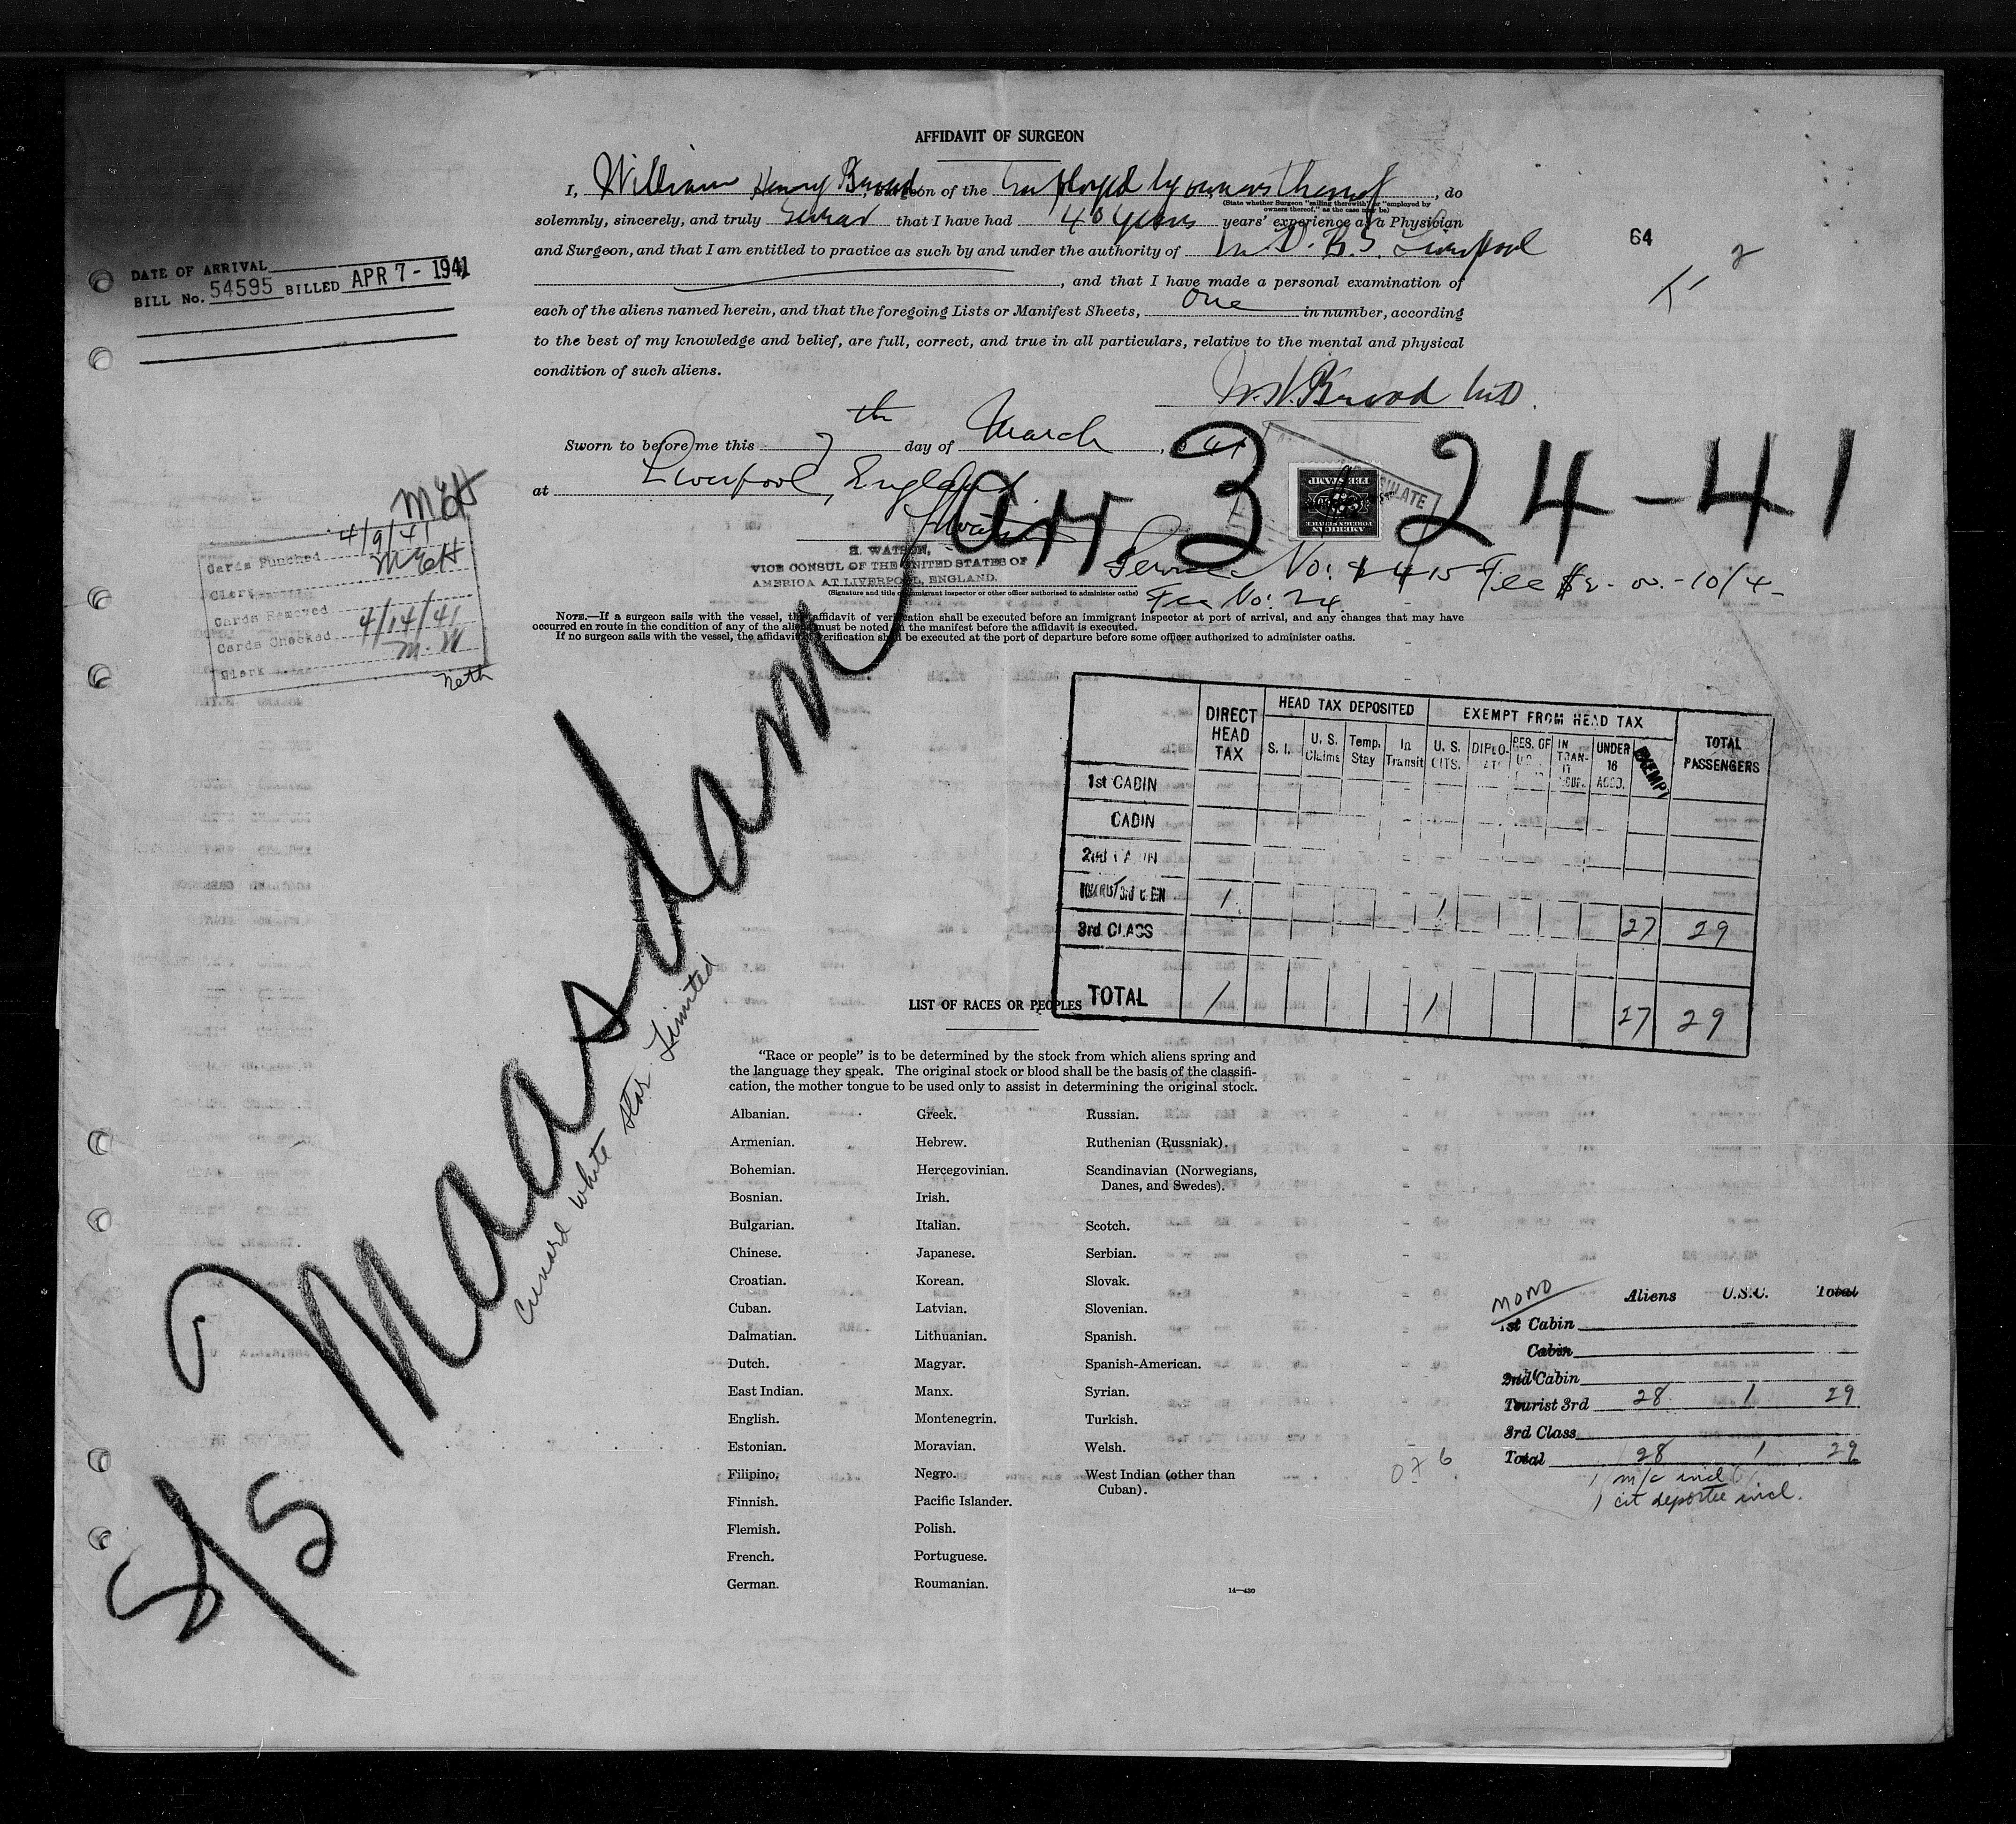 AFFIDAVIT OF SURGEON
I, William Henry Broad, Surgeon of the Employed by owners thereof, do
(State whether Surgeon "sailing therewith" or "employed by
owners thereof," as the case may be)
solemnly, sincerely, and truly Swear that I have had 40 years years' experience as a Physician
and Surgeon, and that I am entitled to practice as such by and under the authority of M.D. B.S. Liverpool
, and that I have made a personal examination of
each of the aliens named herein, and that the foregoing Lists or Manifest Sheets, One in number, according
to the best of my knowledge and belief, are full, correct, and true in all particulars, relative to the mental and physical
condition of such aliens.
W.H. Broad M.D.
64
2
DATE OF ARRIVAL
BILL No. 54595 BILLED APR 7 - 1941
Sworn to before me this 7th day of March, 1941
at Liverpool, England
arr 3 24-41
AMERICAN
FOREIGN SERVICE
FEE STAMP
H. WATSON,
VICE CONSUL OF THE UNITED STATES OF
AMERICA AT LIVERPOOL, ENGLAND.
(Signature and title of immigrant inspector or other officer authorized to administer oaths)
Service No: 2415 Fee $2.00 - 10/4
Fee No: 24
NOTE.—If a surgeon sails with the vessel, the affidavit of verification shall be executed before an immigrant inspector at port of arrival, and any changes that may have
occurred en route in the condition of any of the aliens must be noted on the manifest before the affidavit is executed.
If no surgeon sails with the vessel, the affidavit of verification shall be executed at the port of departure before some officer authorized to administer oaths.
Cards Punched 4/9/41
Clerk
Cards Removed
Cards Checked 4/14/41
Clerk M.W
neth
S/S Maasdam
Cunard White Star Limited
DIRECT HEAD TAX
HEAD TAX DEPOSITED
EXEMPT FROM HEAD TAX
TOTAL PASSENGERS
S. I. U. S. Claims Temp. Stay In Transit U. S. CITS. DIPLO- RES. OF IN TRAN- UNDER 16 ACCD. EXEMPT
1st CABIN
CADIN
2nd CABIN
TOURIST/3rd CABIN 1 1 27 29
3rd CLASS
TOTAL 1 1 27 29
LIST OF RACES OR PEOPLES
"Race or people" is to be determined by the stock from which aliens spring and
the language they speak. The original stock or blood shall be the basis of the classifi-
cation, the mother tongue to be used only to assist in determining the original stock.
Albanian.
Armenian.
Bohemian.
Bosnian.
Bulgarian.
Chinese.
Croatian.
Cuban.
Dalmatian.
Dutch.
East Indian.
English.
Estonian.
Filipino.
Finnish.
Flemish.
French.
German.
Greek.
Hebrew.
Hercegovinian.
Irish.
Italian.
Japanese.
Korean.
Latvian.
Lithuanian.
Magyar.
Manx.
Montenegrin.
Moravian.
Negro.
Pacific Islander.
Polish.
Portuguese.
Roumanian.
Russian.
Ruthenian (Russniak).
Scandinavian (Norwegians,
Danes, and Swedes).
Scotch.
Serbian.
Slovak.
Slovenian.
Spanish.
Spanish-American.
Syrian.
Turkish.
Welsh.
West Indian (other than
Cuban).
14—430
MONO
Aliens U.S.C. Total
1st Cabin
Cabin
2nd Cabin
Tourist 3rd 28 1 29
3rd Class
Total 28 1 29
1 m/c incl
1 cit deportee incl.